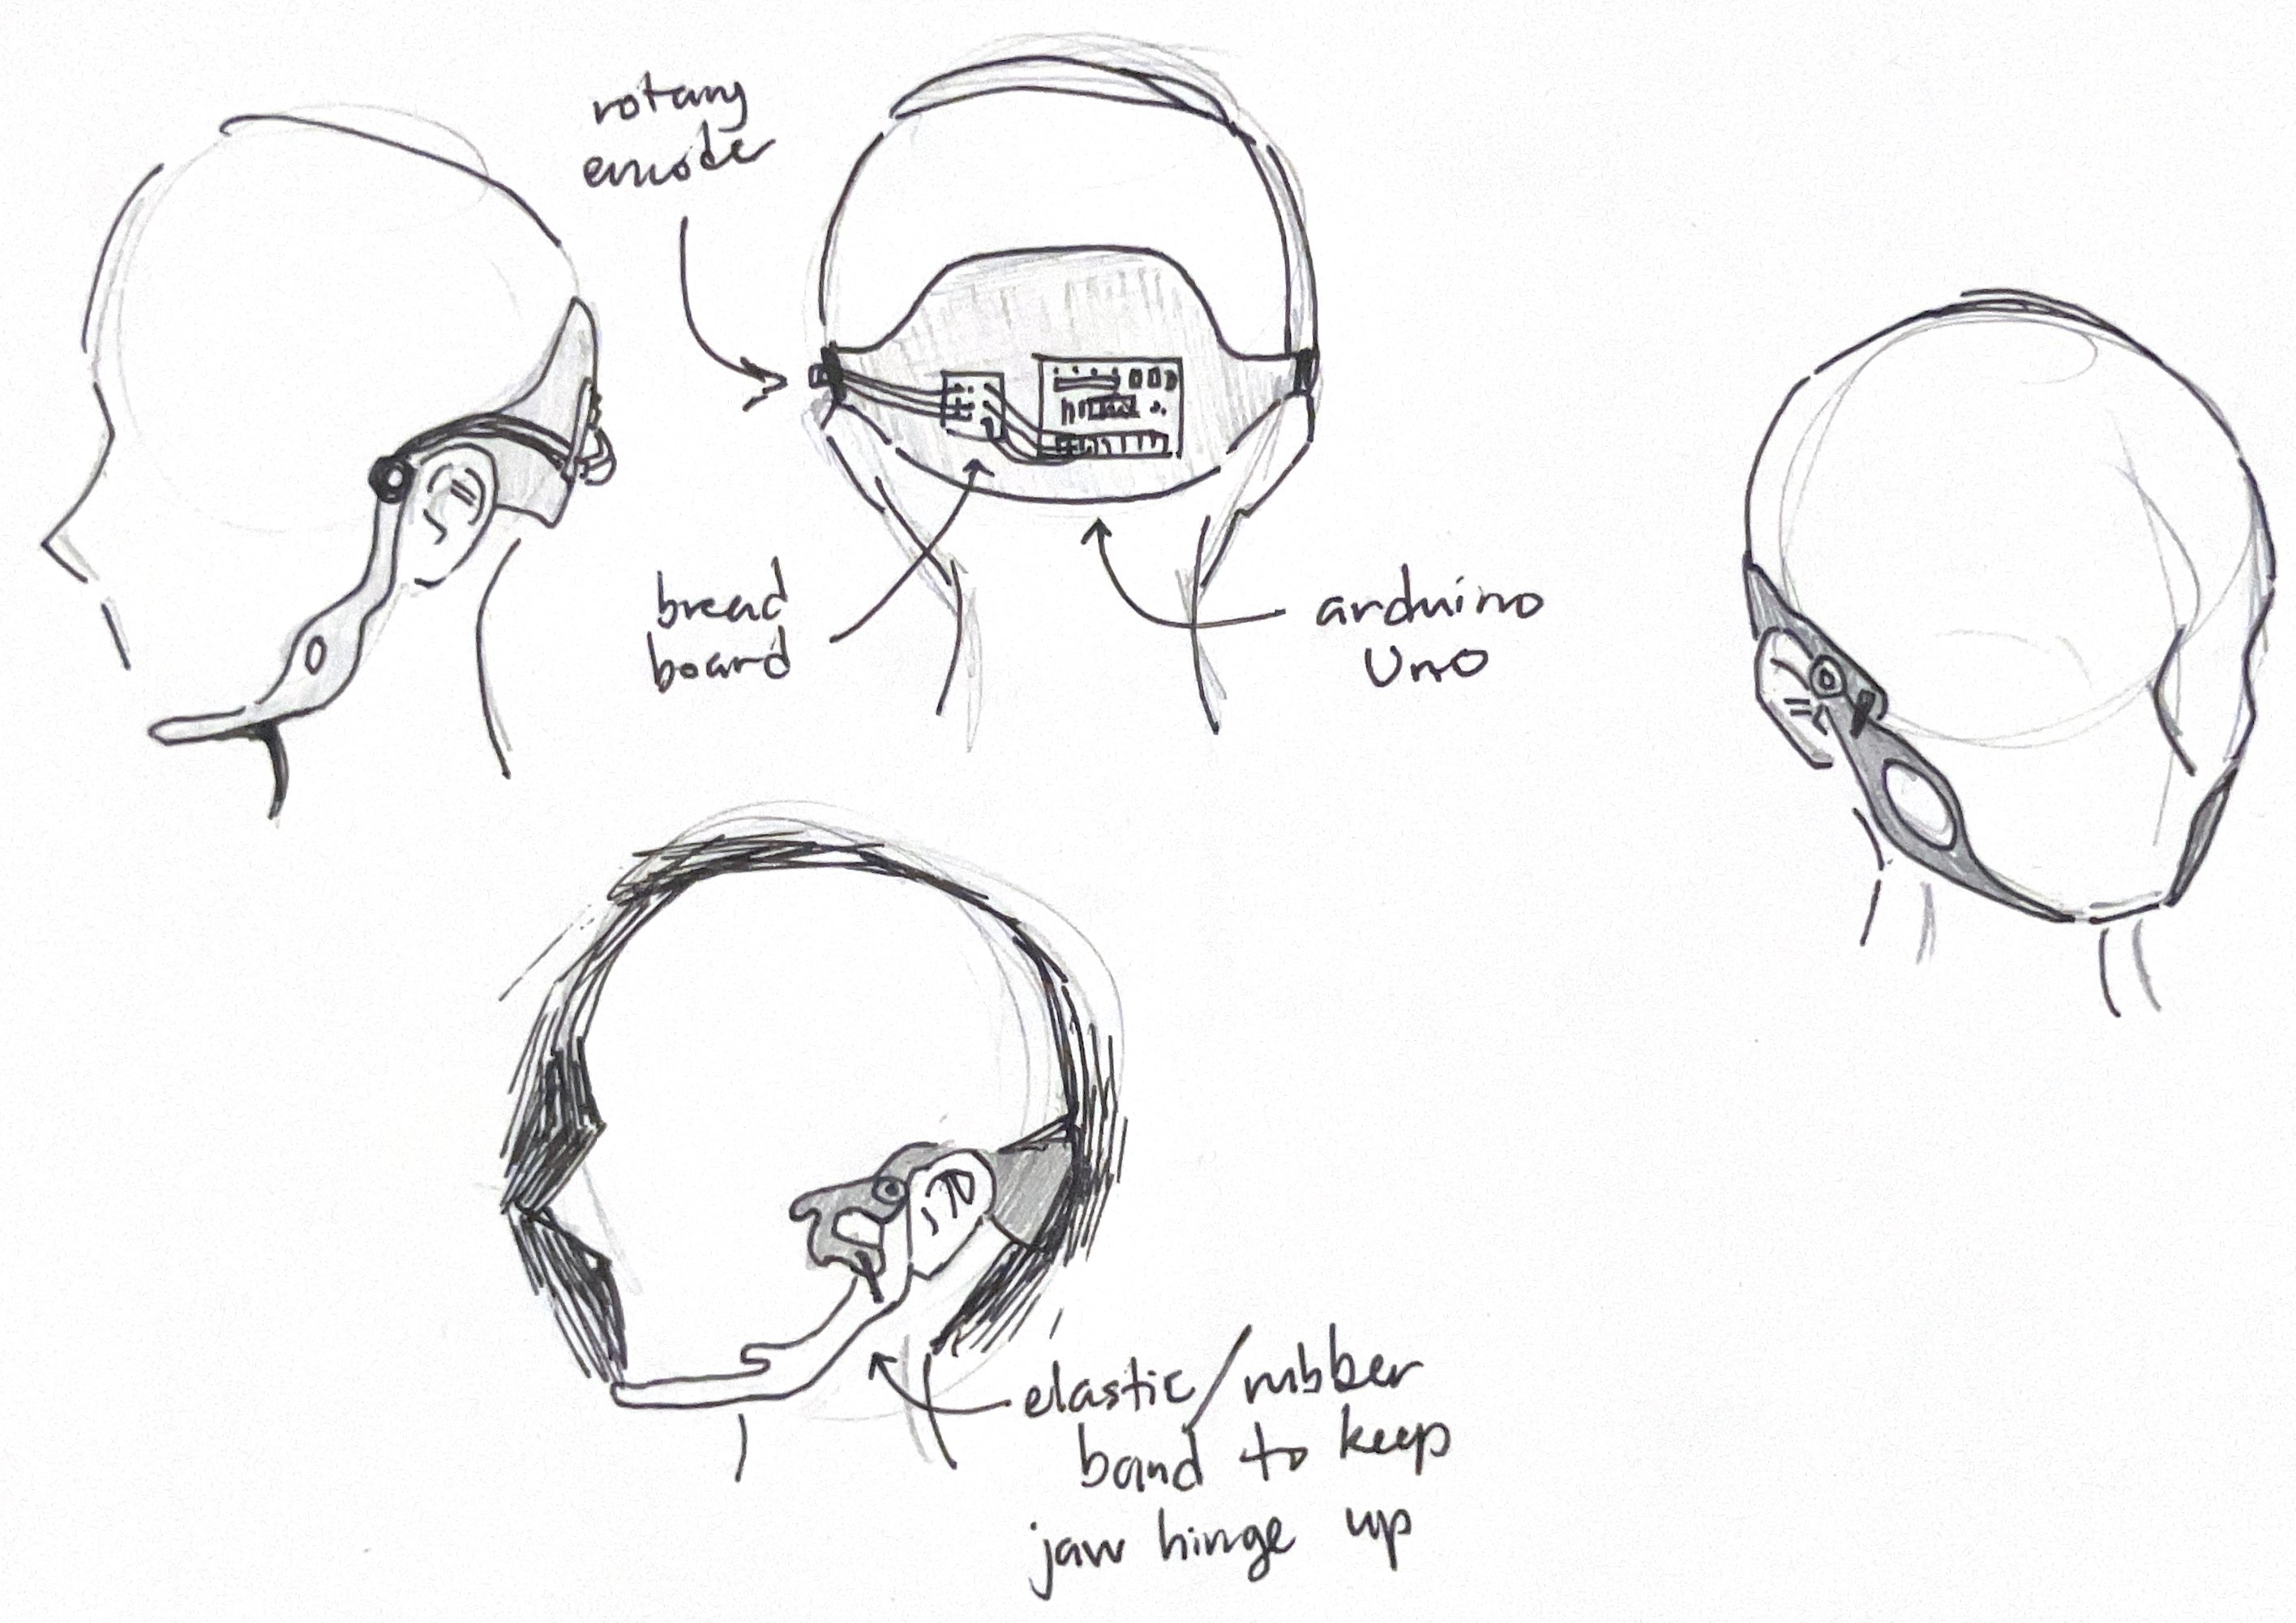 rotary
encoder
bread
board
arduino
Uno
elastic/rubber
band to keep
jaw hinge up